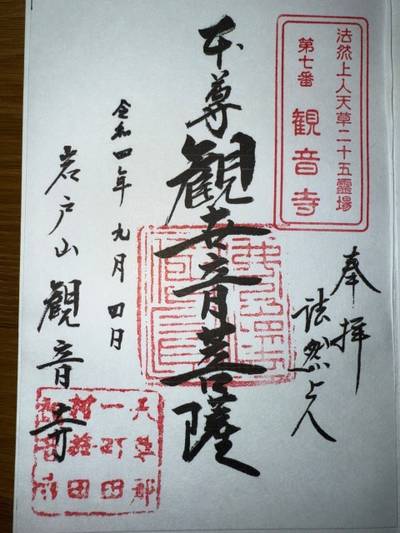 法然上人天草二十五霊場
第七番 観音寺
奉拝
法然上人
本尊 観世音菩薩
令和四年九月四日
岩戸山 観音寺
天草郡
一町田
村益田
観音寺